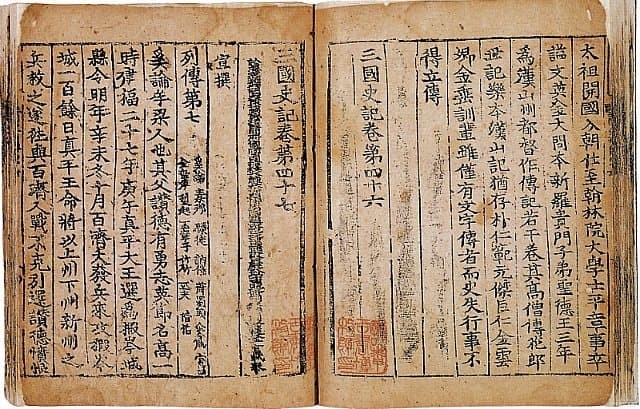 太祖開國入朝仕至翰林院大學士平章事卒
諡文英金大問本新羅貴門子弟聖德王三年
爲漢山州都督作傳記若干卷其高僧傳花郎
世記樂本漢山記猶存朴仁範元傑巨仁金雲
卿金垂訓輩雖僅有文字傳者而史失行事不
得立傳
三國史記卷第四十六
三國史記卷第四十七
宣撰
列傳第七
奚論牟梁人也其父讚德有勇志英節名高一
時建福二十七年庚午真平大王選爲椵岑城
縣令明年辛未冬十月百濟大發兵來攻椵岑
城一百餘日真平王命將以上州下州新州之
兵救之遂往與百濟人戰不克引還讚德憤恨